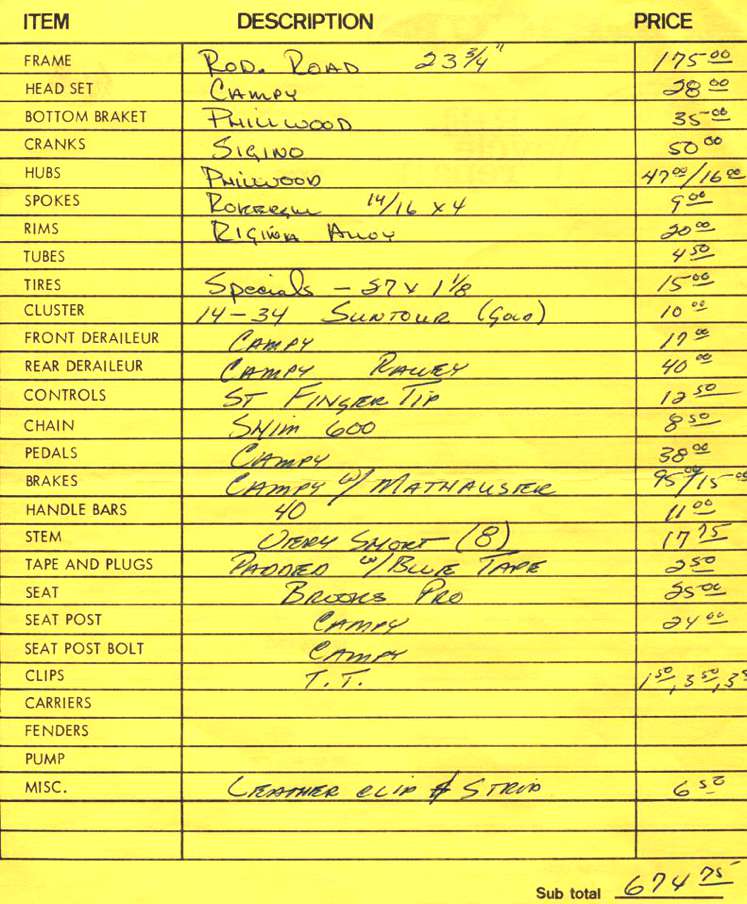 ITEM DESCRIPTION PRICE
FRAME ROD. ROAD 23 3/4" 175 00
HEAD SET CAMPY 28 00
BOTTOM BRAKET PHILLWOOD 35 00
CRANKS SIGINO 50 00
HUBS PHILWOOD 47 00/16 00
SPOKES 14/16 X 4 9 00
RIMS RIGIDA ALLOY 20 00
TUBES 4 50
TIRES Specials - 27 X 1 1/8 15 00
CLUSTER 14-34 SUNTOUR (GOLD) 10 00
FRONT DERAILEUR CAMPY 17 00
REAR DERAILEUR CAMPY RALLEY 40 00
CONTROLS ST FINGER TIP 12 50
CHAIN SHIM 600 8 50
PEDALS CAMPY 38 00
BRAKES CAMPY W/ MATHAUSER 95 00/15 00
HANDLE BARS 40 11 00
STEM VERY SHORT (8) 17 75
TAPE AND PLUGS PADDED W/ BLUE TAPE 2 50
SEAT BROOKS PRO 25 00
SEAT POST CAMPY 24 00
SEAT POST BOLT CAMPY
CLIPS T.T. 1 50, 3 50, 3
CARRIERS
FENDERS
PUMP
MISC. LEATHER CLIP & STRIP 6 50
Sub total 674 75